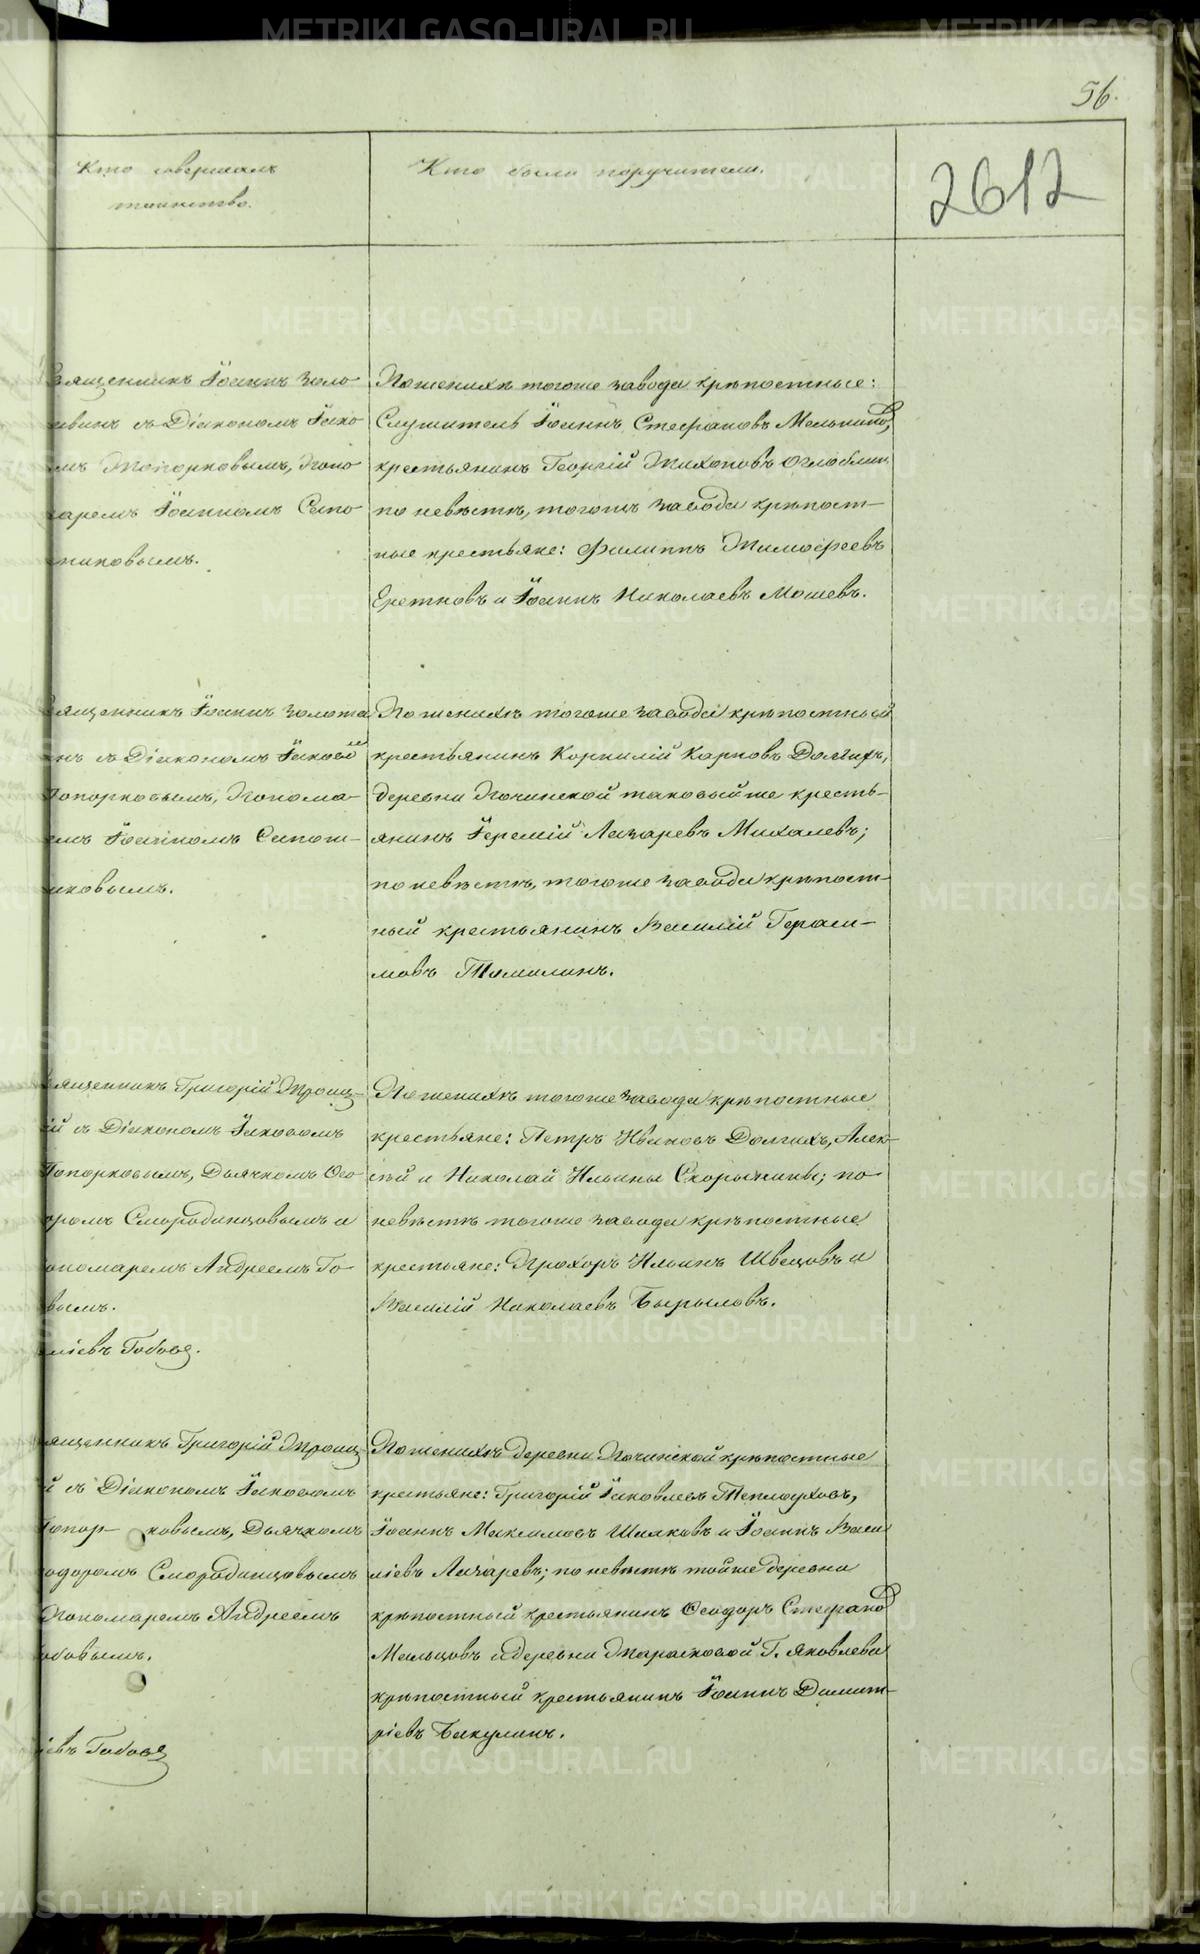 56.
Кто совершалъ
таинство.
Кто были поручители.
2612
вященникъ Іоаннъ Золо
авинъ съ Діакономъ Іако
мъ Топорковымъ, Поно
аремъ Іоанномъ Сапо
никовымъ.
По женихѣ тогоже завода крѣпостные:
Служитель Іоаннъ Стефановъ Мельниковъ,
крестьянинъ Георгій Тихоновъ Оглоблин
по невѣстѣ, тогожъ завода крѣпост-
ные крестьяне: Филиппъ Тимофеевъ
Еретновъ и Іоаннъ Николаевъ Мошевъ.
вященникъ Іоаннъ Золота
нъ съ Діакономъ Іаковом
Топорковымъ, Понома
емъ Іоанномъ Сапож-
иковымъ.
По женихѣ тогоже завода крѣпостный
крестьянинъ Корнилій Карповъ Долгихъ,
деревни Починской таковый же кресть-
янинъ Іеремій Лазаревъ Михалевъ;
по невѣстѣ, тогоже завода крѣпост-
ный крестьянинъ Василій Гераси-
мовъ Томилинъ.
вященникъ Григорій Троиц-
ій съ Діакономъ Іаковомъ
Топорковымъ, Дьячкомъ Ѳео
оромъ Смородинцовымъ и
ономаремъ Андреемъ Го
вымъ.
ліевъ Гобовъ.
По женихѣ тогоже завода крѣпостные
крестьяне: Петръ Ивановъ Долгихъ, Алек-
сѣй и Николай Ильины Скорынины; по
невѣстѣ тогоже завода крѣпостные
крестьяне: Прохоръ Ильинъ Швецовъ и
Василій Николаевъ Бырыловъ.
ященникъ Григорій Троиц-
й съ Діакономъ Іаковомъ
Топор- ковымъ, Дьячкомъ
одоромъ Смородинцовымъ
Пономаремъ Андреемъ
обовымъ.
іевъ Гобовъ
По женихѣ деревни Починской крѣпостные
крестьяне: Григорій Іаковлевъ Теплоуховъ,
Іоаннъ Максимовъ Шлаковъ и Іоаннъ Васи
ліевъ Лазаревъ; по невѣстѣ тойже деревни
крѣпостный крестьянинъ Ѳеодоръ Стефановъ
Мальцовъ и деревни Тарасковой Г. Яковлева
крѣпостный крестьянинъ Іоаннъ Димит-
ріевъ Бакулинъ.
METRIKI.GASO-URAL.RU